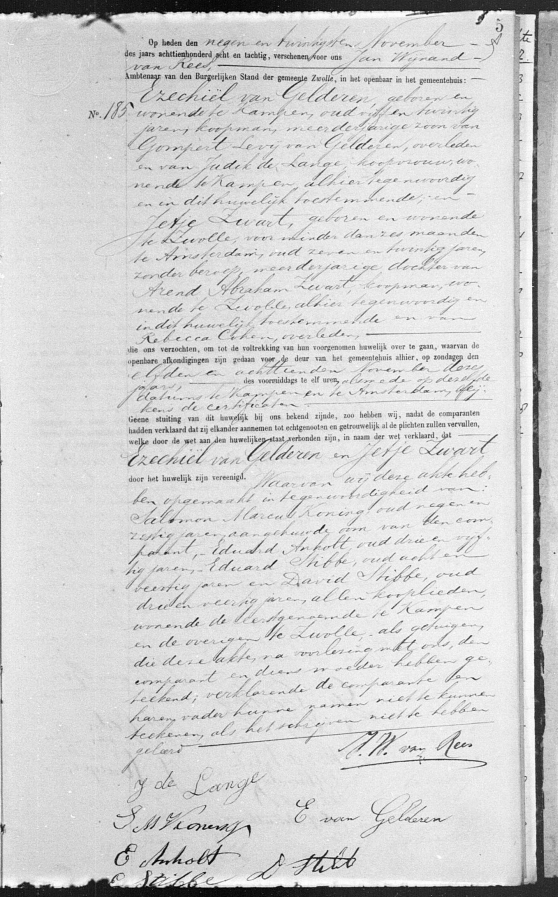 Op heden den negen en twintigsten November
des jaars achttienhonderd acht en tachtig, verschenen voor ons Jan Wijnand
van Rees,
Ambtenaar van den Burgerlijken Stand der gemeente Zwolle, in het openbaar in het gemeentehuis:
No. 185 Ezechiël van Gelderen, geboren en
wonende te Kampen, oud en twintig
jaren, koopman, meerderjarige zoon van
Gompert Levij van Gelderen, overleden
en van Judik de Lange, koopvrouw, wo-
nende te Kampen, alhier tegenwoordig
en in dit huwelijk toestemmende; en
Jetje Zwart, geboren en wonende
te Zwolle, voor minder dan zes maanden
te Amsterdam, oud zeven en twintig jaren,
zonder beroep, meerderjarige dochter van
Arend Abraham Zwart, koopman, wo-
nende te Zwolle, alhier tegenwoordig en
in dit huwelijk toestemmende en van
Rebecca Cohen, overleden,
die ons verzochten, om tot de voltrekking van hun voorgenomen huwelijk over te gaan, waarvan de
openbare afkondigingen zijn gedaan voor de deur van het gemeentehuis alhier, op zondagen den
elfden en achttienden November dezes
jaars, des voormiddags te elf uren, alsmede op dezelfde
datums te Kampen en te Amsterdam, blij-
kens de certificaten
Geene stuiting van dit huwelijk bij ons bekend zijnde, zoo hebben wij, nadat de comparanten
hadden verklaard dat zij elkander aannemen tot echtgenooten en getrouwelijk al de plichten zullen vervullen,
welke door de wet aan den huwelijken staat verbonden zijn, in naam der wet verklaard, dat
Ezechiël van Gelderen en Jetje Zwart,
door het huwelijk zijn vereenigd. Waarvan wij deze akte heb-
ben opgemaakt in tegenwoordigheid van:
Salomon Marcus Koning, oud negen en
zestig jaren, aangehuwde oom van den com-
parant, Eduard Anholt, oud drie en vijf-
tig jaren, Eduard Stibbe, oud acht en
veertig jaren en David Stibbe, oud
drie en veertig jaren, allen kooplieden,
wonende de eerstgenoemde te Kampen
en de overigen te Zwolle, als getuigen,
die deze akte, na voorlezing, met ons, den
comparant en diens moeder hebben ge-
teekend; verklarende de comparante en
haren vader hunne namen niet te kunnen
teekenen, als het schrijven niet te hebben
geleerd
J. W. van Rees
J de Lange
S M Koning
E van Gelderen
E Anholt
E Stibbe D Stibbe